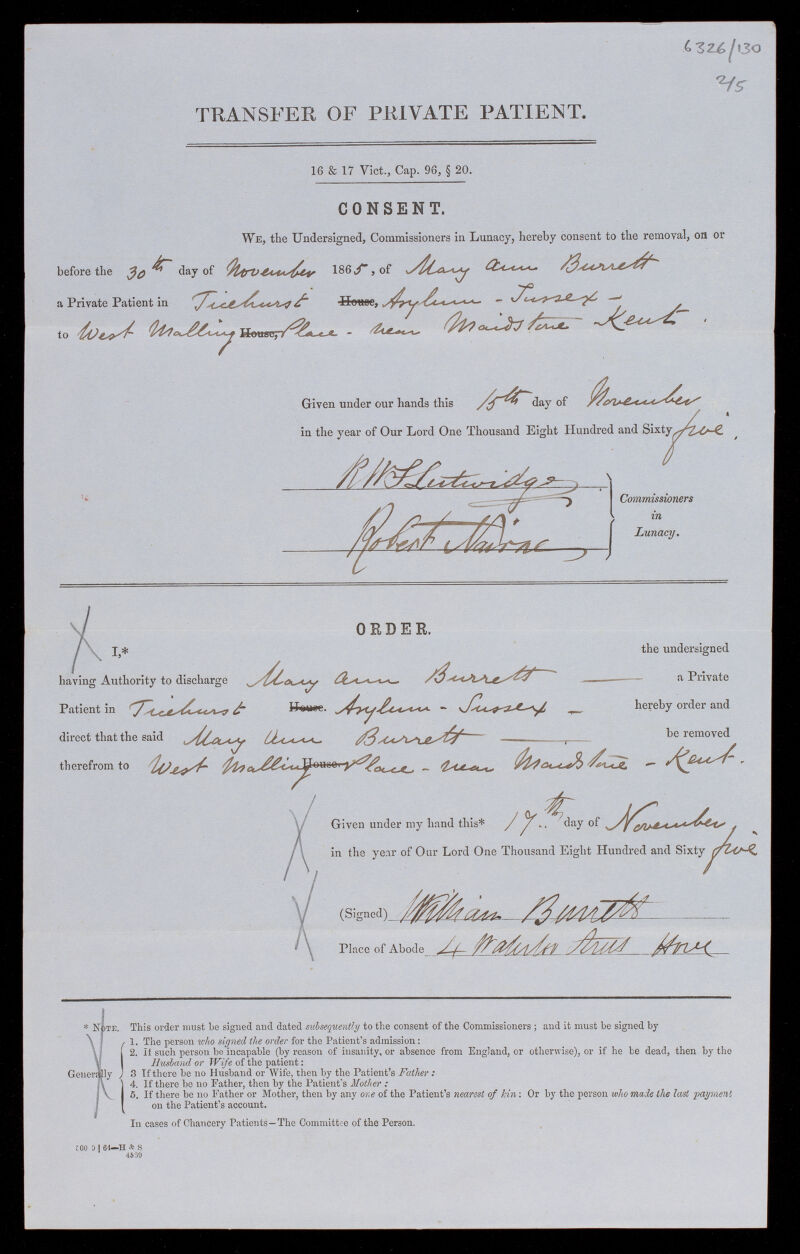 6326/130
2/5
TRANSFER OF PRIVATE PATIENT.
16 & 17 Vict., Cap. 96, § 20.
CONSENT.
WE, the Undersigned, Commissioners in Lunacy, hereby consent to the removal, on or
before the 30th day of November 1865, of Mary Ann Burrett
a Private Patient in Ticehurst House, Asylum - Sussex -
to West Malling House, Place - near Maidstone - Kent.
Given under our hands this 15th day of November
in the year of Our Lord One Thousand Eight Hundred and Sixty five.
R W S Lutwidge
Robert Nairne
Commissioners
in
Lunacy.
ORDER.
I,* the undersigned
having Authority to discharge Mary Ann Burrett — a Private
Patient in Ticehurst House. Asylum - Sussex - hereby order and
direct that the said Mary Ann Burrett — be removed
therefrom to West Malling House. Place - near Maidstone - Kent.
Given under my hand this* 17th day of November
in the year of Our Lord One Thousand Eight Hundred and Sixty five
(Signed) William Burrett
Place of Abode 4 Waterloo Street Hove
* NOTE. This order must be signed and dated subsequently to the consent of the Commissioners; and it must be signed by
Generally
1. The person who signed the order for the Patient's admission:
2. If such person be incapable (by reason of insanity, or absence from England, or otherwise), or if he be dead, then by the
Husband or Wife of the patient:
3 If there be no Husband or Wife, then by the Patient's Father:
4. If there be no Father, then by the Patient's Mother:
5. If there be no Father or Mother, then by any one of the Patient's nearest of kin: Or by the person who made the last payment
on the Patient's account.
In cases of Chancery Patients—The Committee of the Person.
500 9 | 64—H & S
4559